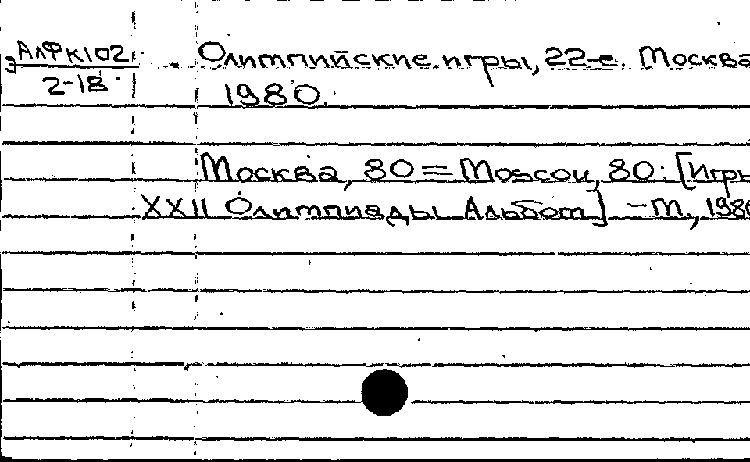 э АлФ К102
2-18
Олимпийские игры, 22-е. Москва
1980.
Москва, 80 = Moscou, 80: [Игры
XXII Олимпиады Альбом] - М., 1980